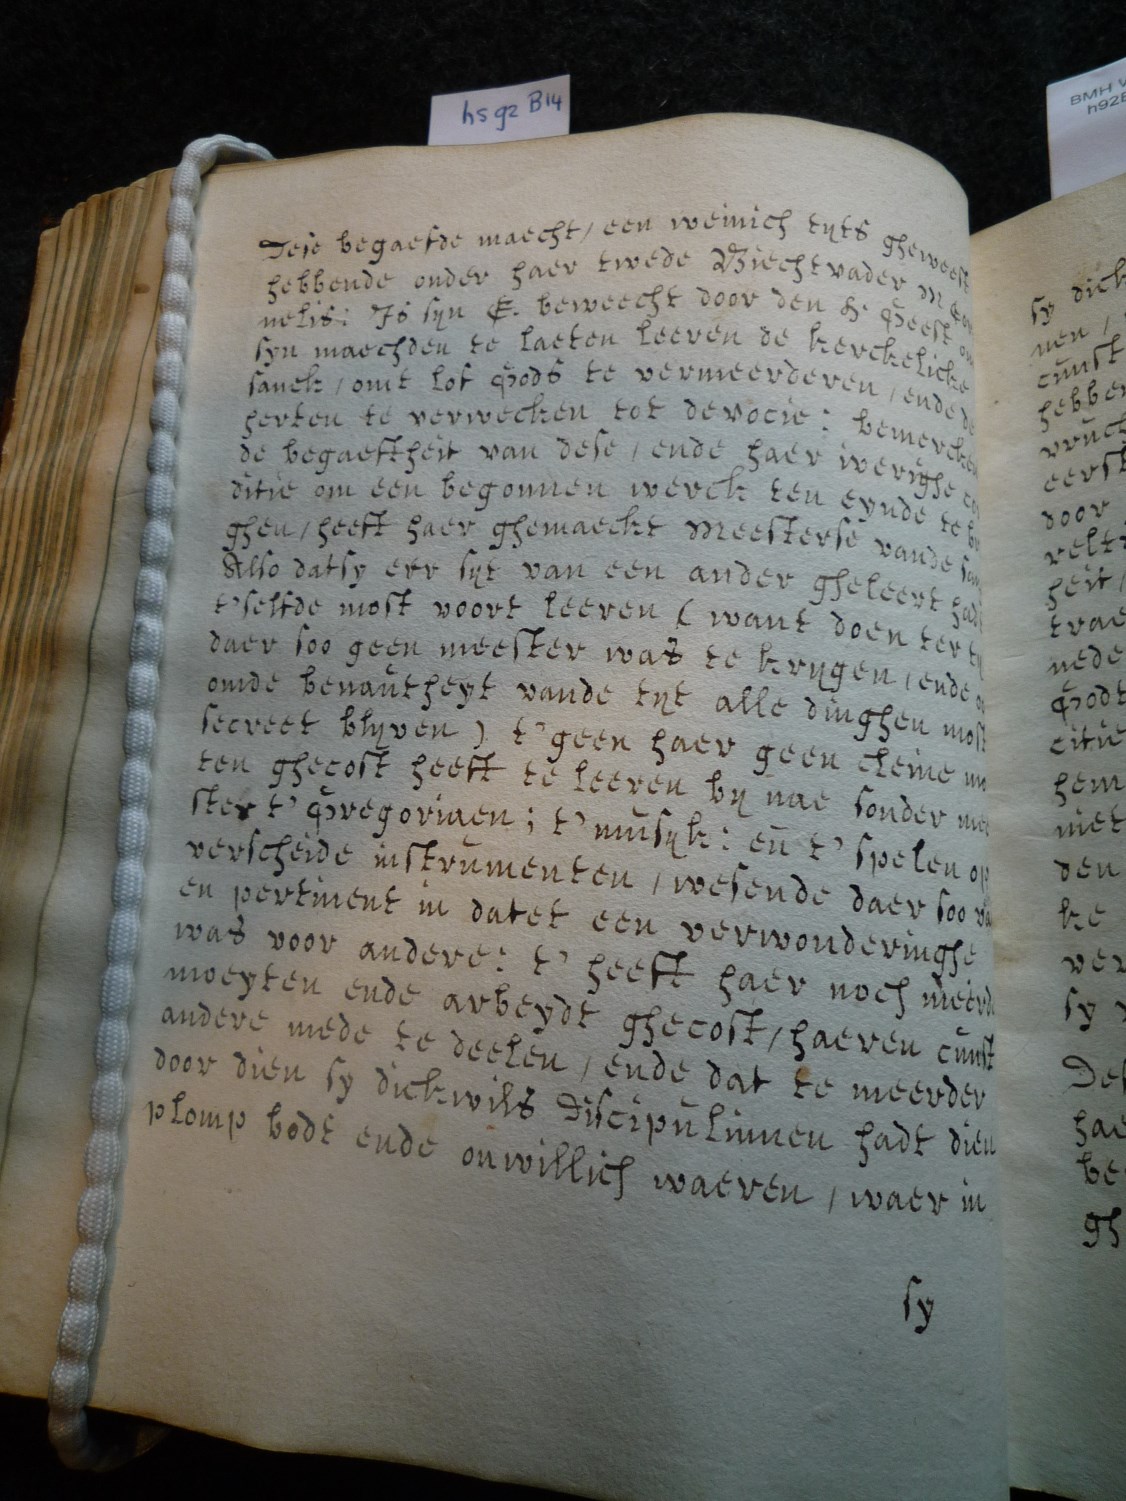 hs 92 B14
BMH
h92B
Dese begaefde maecht / een weinich tyts gheweest
hebbende onder haer twede Biechtvader M Cor
nelis: Is syn E. beweecht door den H Geest om
syn maechden te laeten leeren de kerckelicke
sanck / omt lof Gods te vermeerderen / ende de
herten te verwecken tot devocie: bemercken
de begaeftheit van dese / ende haer iverighe co
ditie om een begonnen werck ten eynde te br
ghen / heeft haer ghemaeckt Meesterse vande san
Also datsy err syt van een ander gheleert had
t'selfde most voort leeren ( want doen ter ty
daer soo geen meester was te krygen / ende
omde benautheyt vande tyt alle dinghen most
secreet blyven ) t'geen haer geen cleine m
ten ghecost heeft te leeren by nae sonder mee
ster t'Gregoriaen; t'musyk: en t'spelen op
verscheide instrumenten / wesende daer soo va
en pertinent in datet een verwonderinghe
was voor andere: t'heeft haer noch meerde
moeyten ende arbeydt ghecost / haeren cunst
andere mede te deelen / ende dat te meerder
door dien sy dickwils discipulinnen hadt dien
plomp bodt ende onwillich waeren / waer in
sy
sy dick
nen /
cunst
hebben
vruch
eerst
door
relt
heit /
trae
nede
Godt
citie
hem
niet
den
ke
ver
sy
Des
hae
be
gh